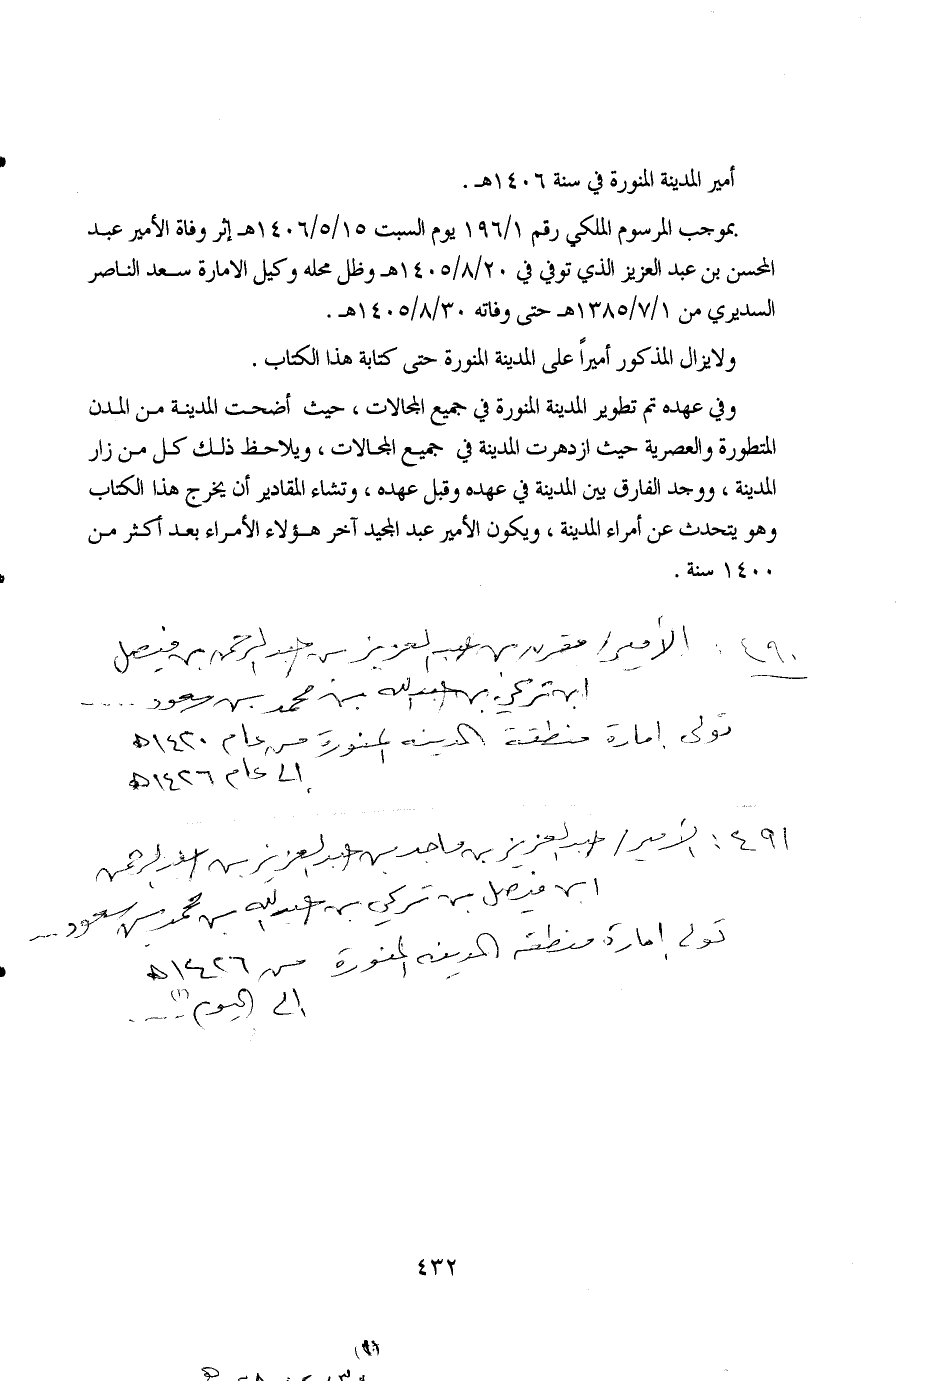 أمير المدينة المنورة في سنة ١٤٠٦هـ .
بموجب المرسوم الملكي رقم ١٩٦/١ يوم السبت ١٤٠٦/٥/١٥هـ إثر وفاة الأمير عبد
المحسن بن عبد العزيز الذي توفي في ١٤٠٥/٨/٢٠هـ وظل محله وكيل الامارة سعد الناصر
السديري من ١٣٨٥/٧/١هـ حتى وفاته ١٤٠٥/٨/٣٠هـ .
ولايزال المذكور أميراً على المدينة المنورة حتى كتابة هذا الكتاب .
وفي عهده تم تطوير المدينة المنورة في جميع المجالات ، حيث أضحت المدينة من المدن
المتطورة والعصرية حيث ازدهرت المدينة في جميع المجالات ، ويلاحظ ذلك كل من زار
المدينة ، ووجد الفارق بين المدينة في عهده وقبل عهده ، وتشاء المقادير أن يخرج هذا الكتاب
وهو يتحدث عن أمراء المدينة ، ويكون الأمير عبد المجيد آخر هؤلاء الأمراء بعد أكثر من
١٤٠٠ سنة .
٤٩٠ : الأمير/ مقرن بن عبد العزيز بن عبد الرحمن بن فيصل
ابن تركي بن عبدالله بن محمد بن سعود .....
تولى إمارة منطقة المدينة المنورة من عام ١٤٢٠هـ
إلى عام ١٤٢٦هـ
٤٩١ : الأمير/ عبد العزيز بن ماجد بن عبد العزيز بن عبد الرحمن
ابن فيصل بن تركي بن عبدالله بن محمد بن سعود ...
تولى إمارة منطقة المدينة المنورة من ١٤٢٦هـ
إلى اليوم (١) ....
٤٣٢
(١)